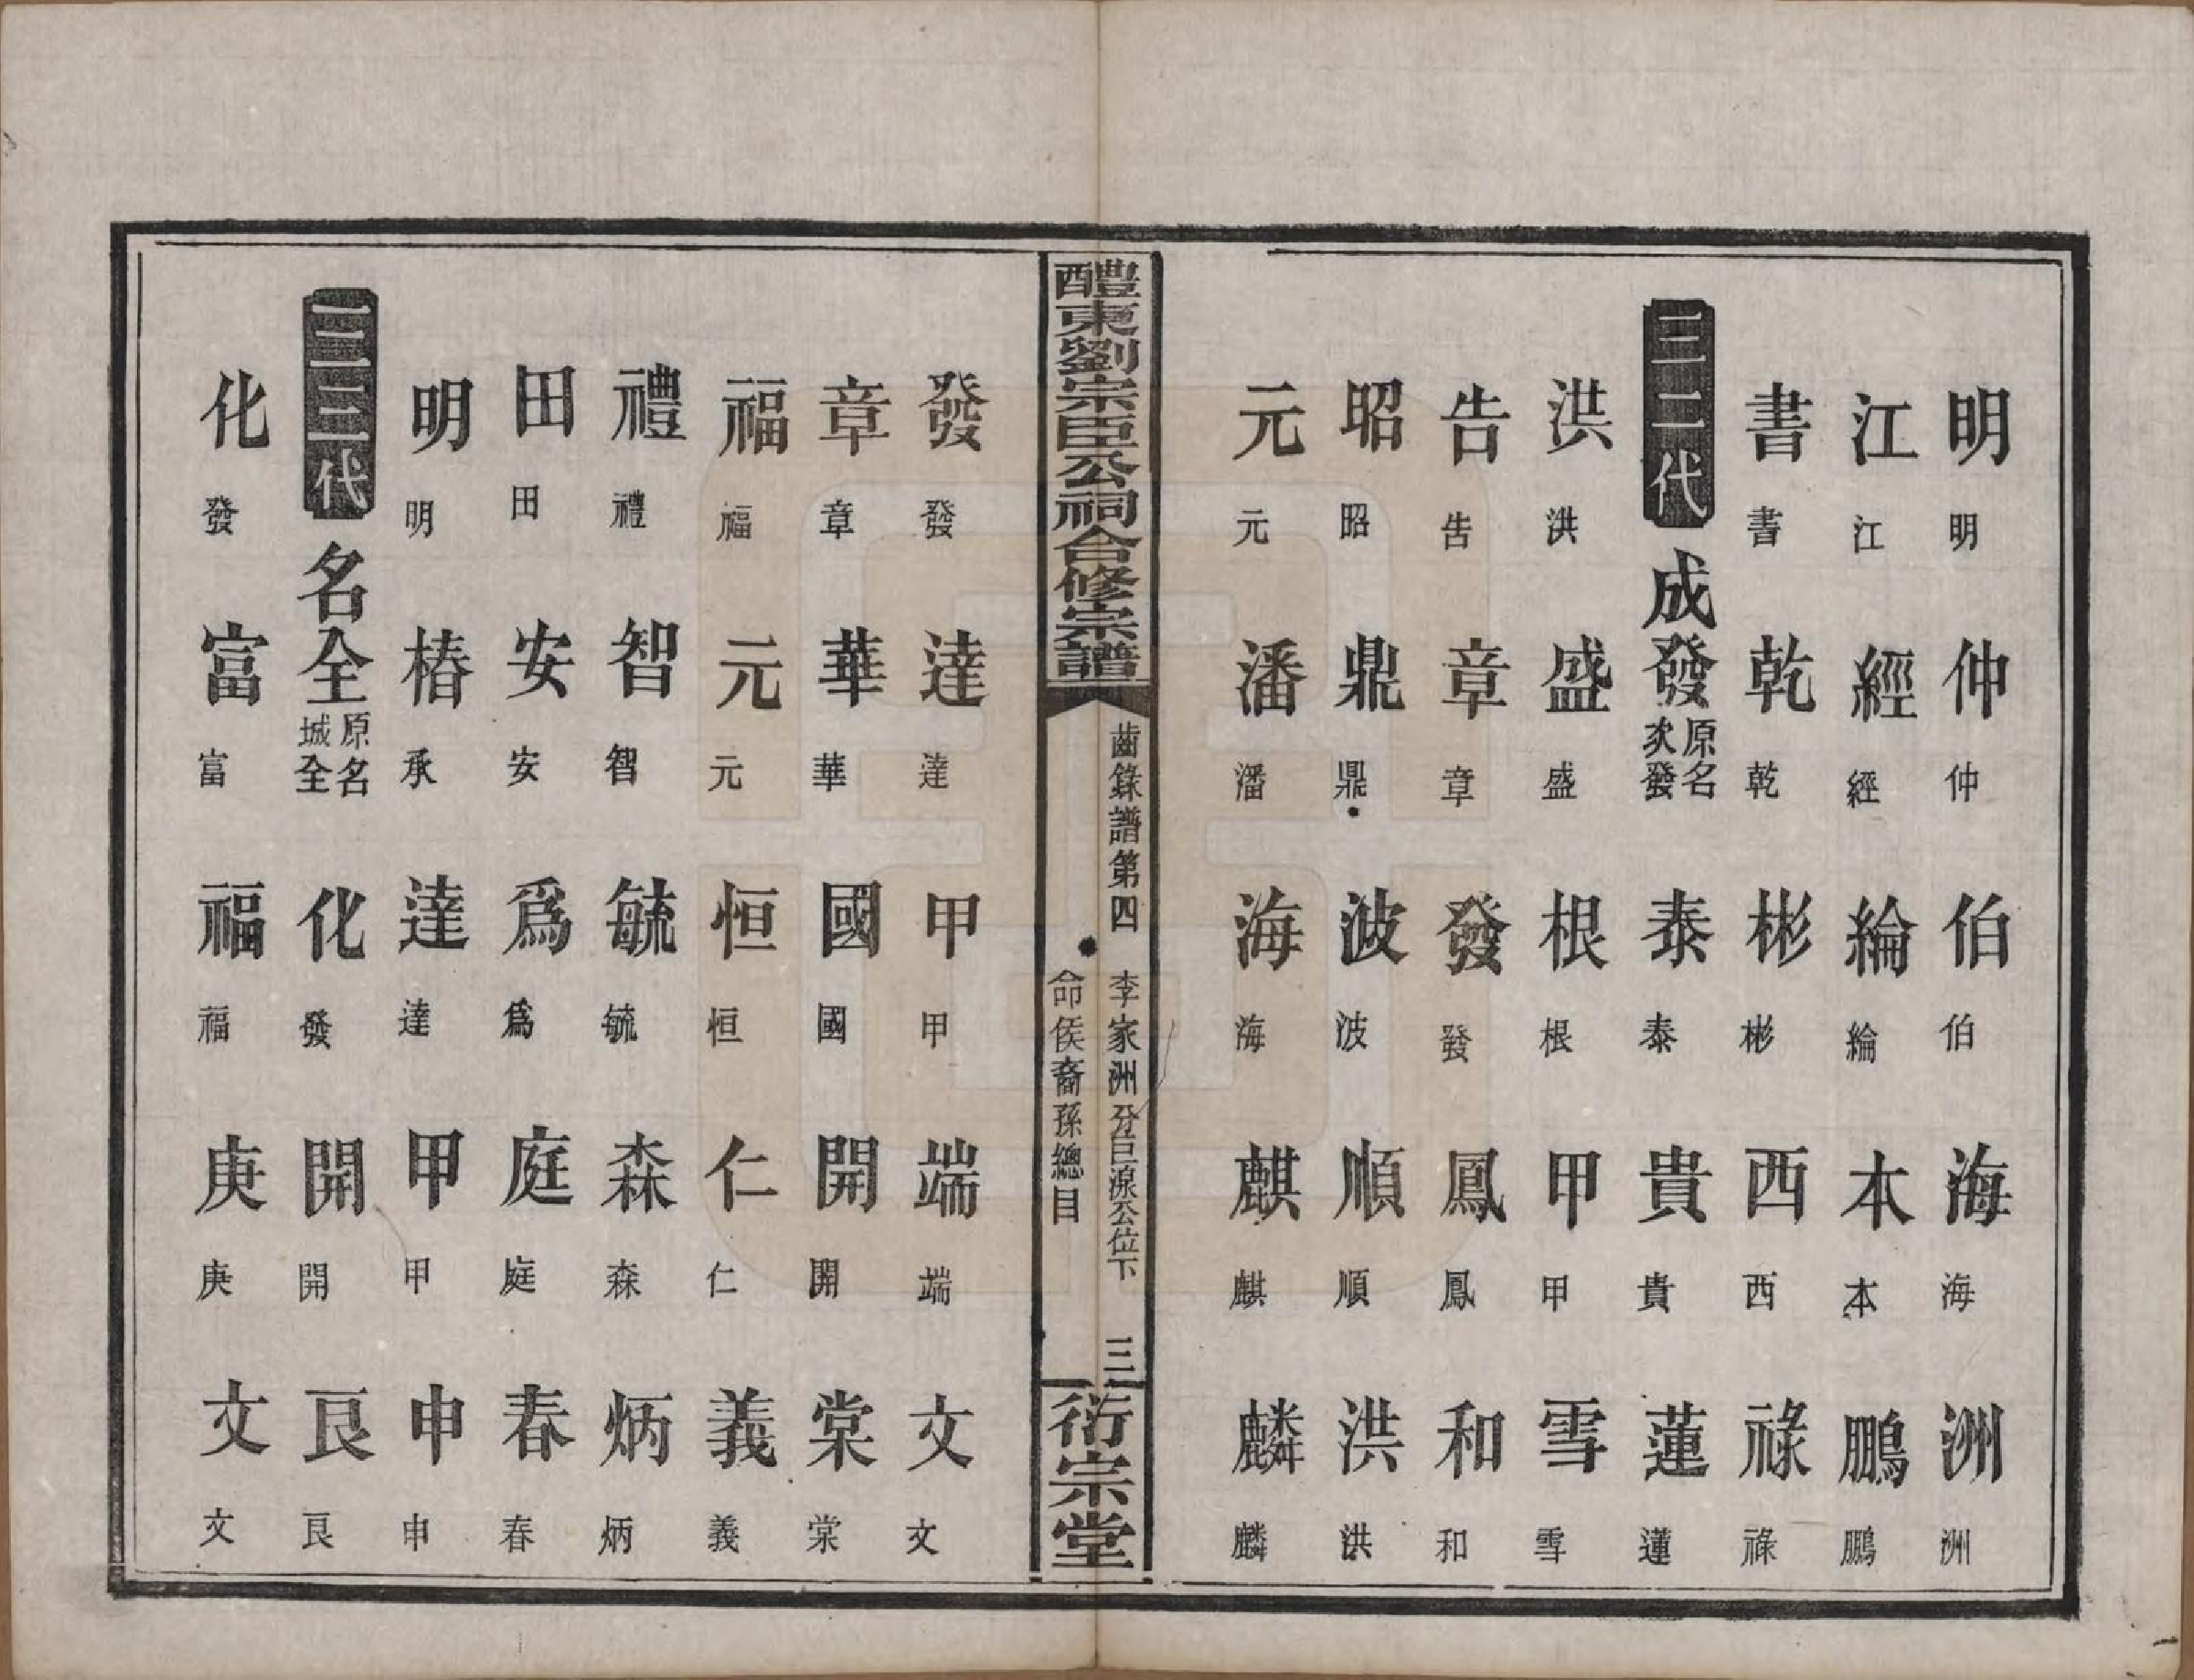 明明 仲仲 伯伯 海海 洲洲
江江 經經 綸綸 本本 鵬鵬
書書 乾乾 彬彬 西西 祿祿
三二代 成發 原名次發 泰泰 貴貴 蓮蓮
洪洪 盛盛 根根 甲甲 雪雪
告吿 章章 發發 鳳鳳 和和
昭昭 鼎鼎 波波 順順 洪洪
元元 潘潘 海海 麒麒 麟麟
醴東劉宗臣公祠合修宗譜
齒錄譜第四 李家洲分巨源公位下 三
命侯裔孫總目
衍宗堂
發發 達達 甲甲 端端 文文
章章 華華 國國 開開 棠棠
福福 元元 恒恒 仁仁 義義
禮禮 智智 毓毓 森森 炳炳
田田 安安 爲爲 庭庭 春春
明明 椿承 達達 甲甲 申申
三三代 名全 原名城全 化發 開開 艮艮
化發 富富 福福 庚庚 文文